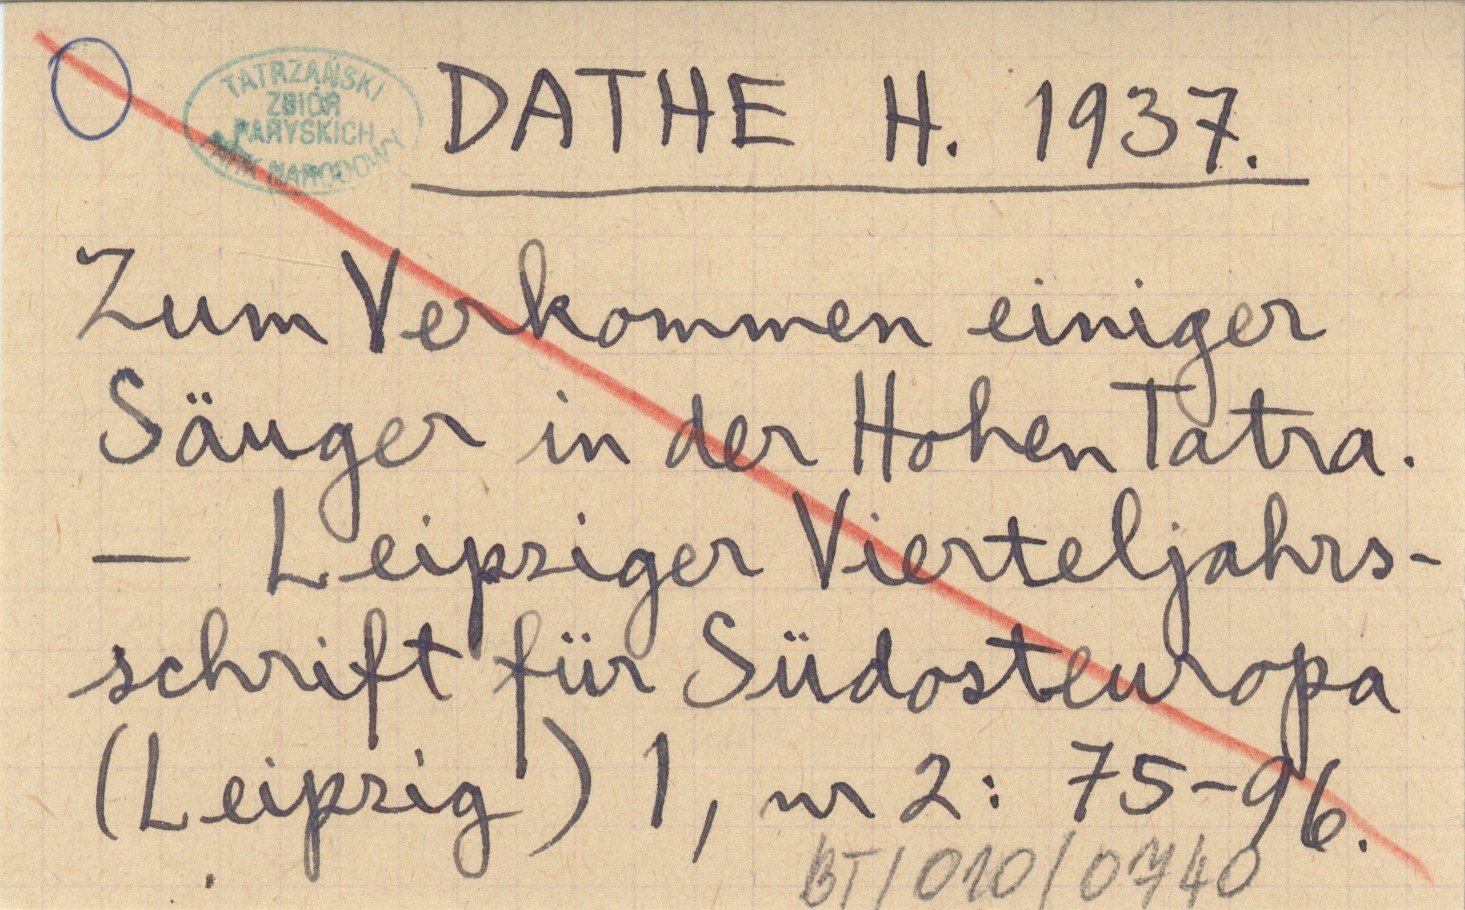 TATRZAŃSKI
ZBIÓR
PARYSKICH
PARK NARODOWY
DATHE H. 1937.
Zum Verkommen einiger
Säuger in der Hohen Tatra.
— Leipziger Vierteljahrs-
schrift für Südosteuropa
(Leipzig) 1, nr 2: 75-96.
BT/010/0740